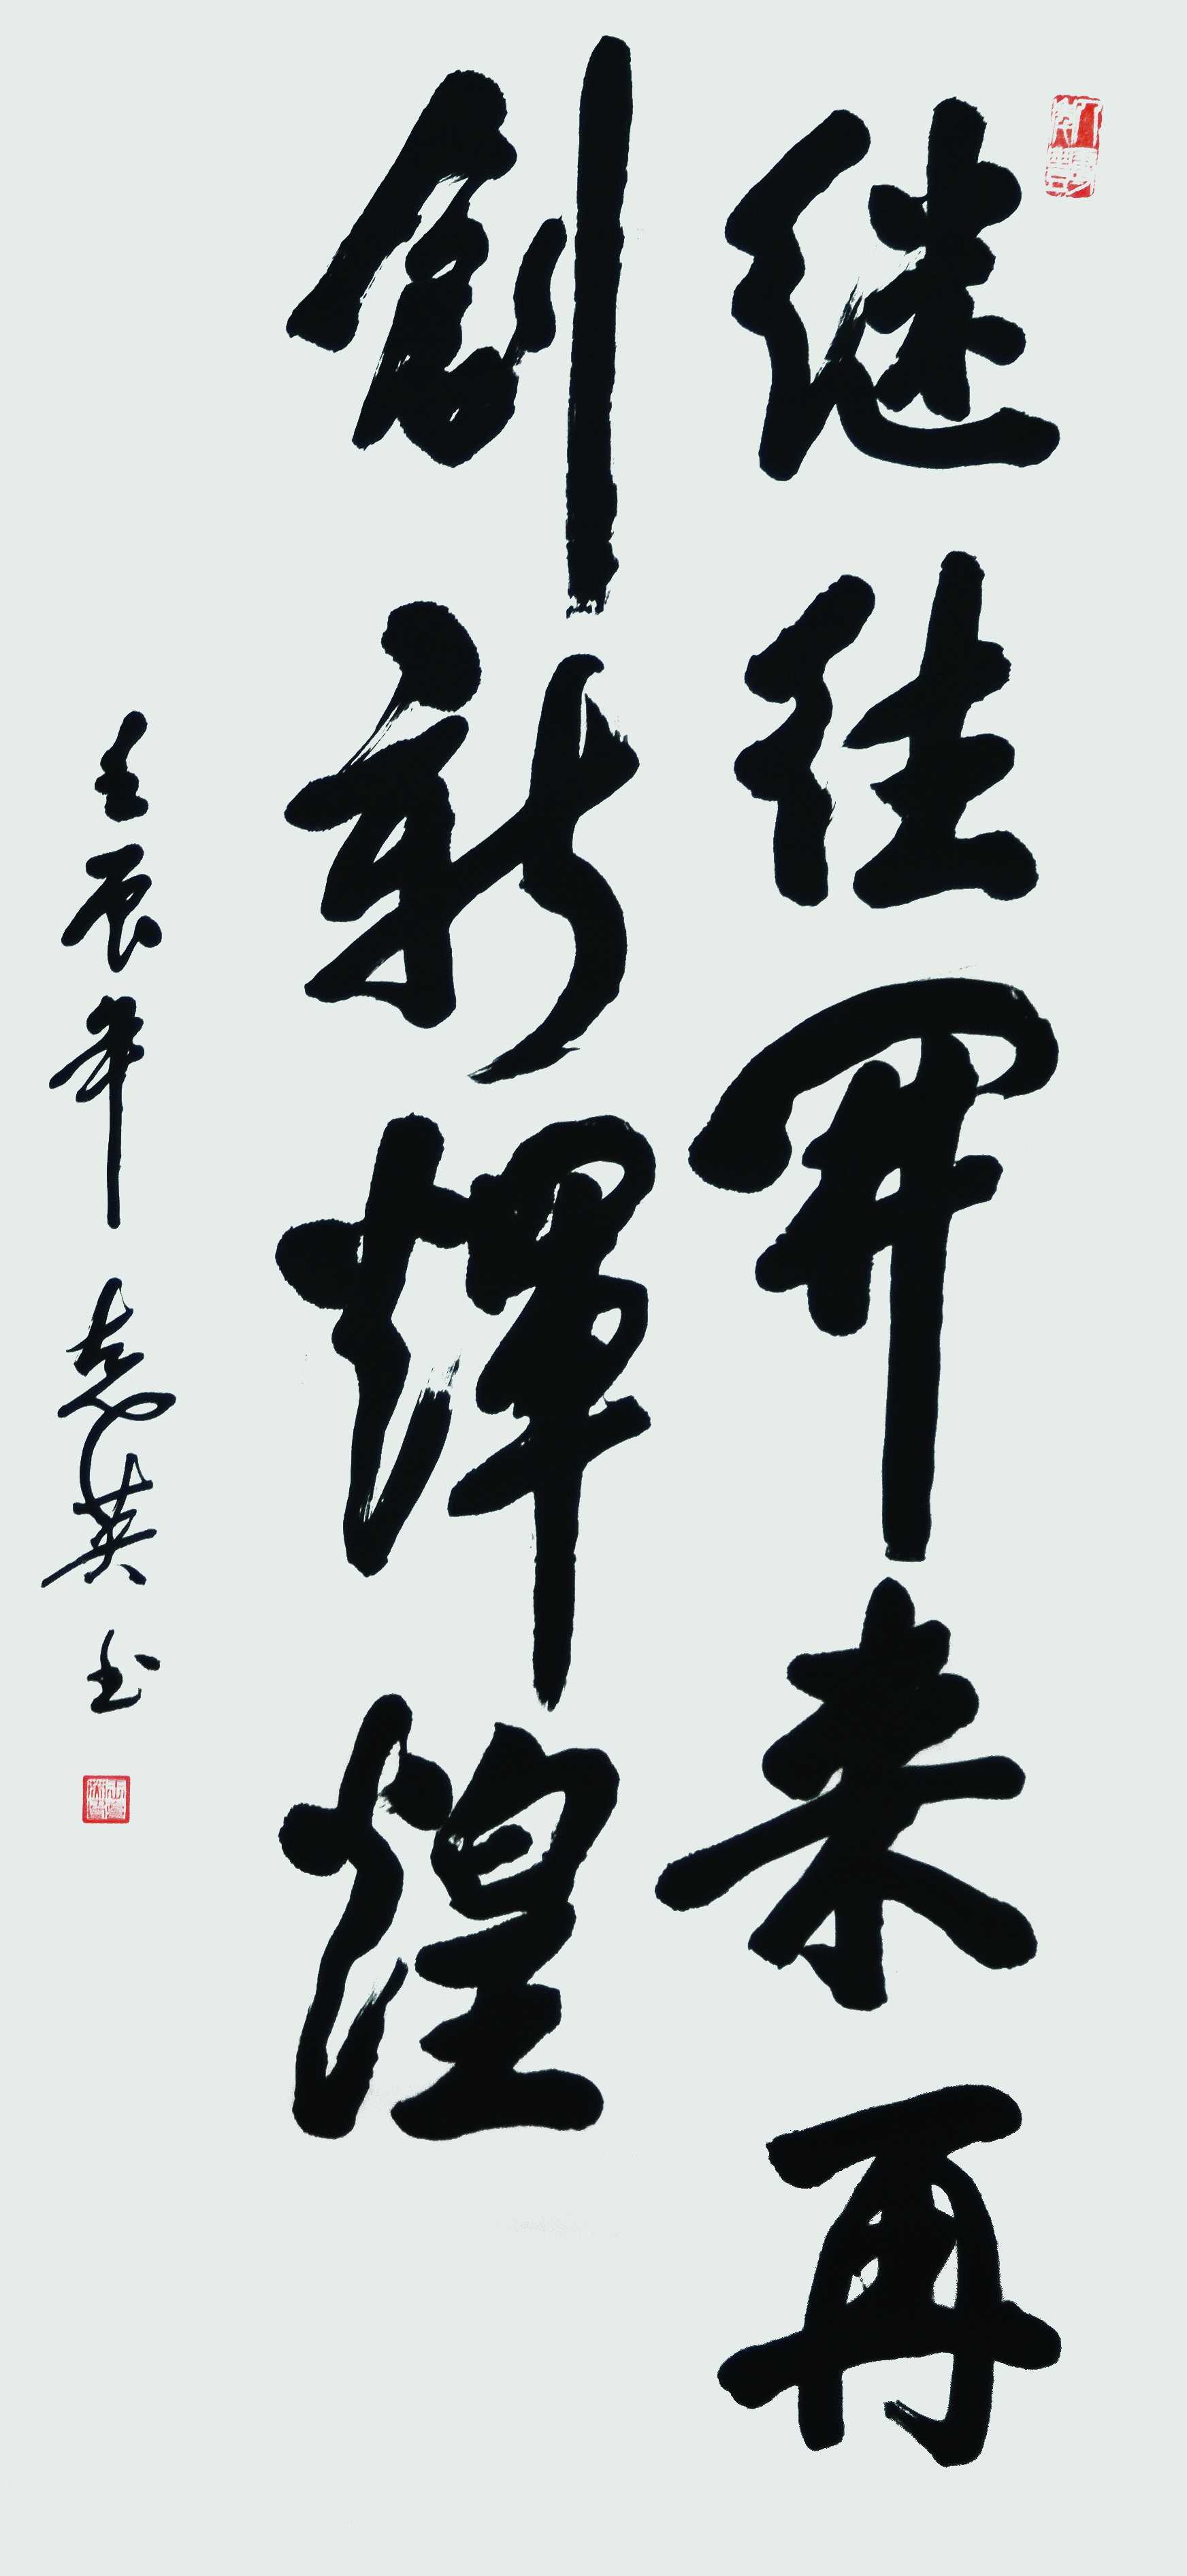 继往开来再
創新輝煌
壬辰年志英书